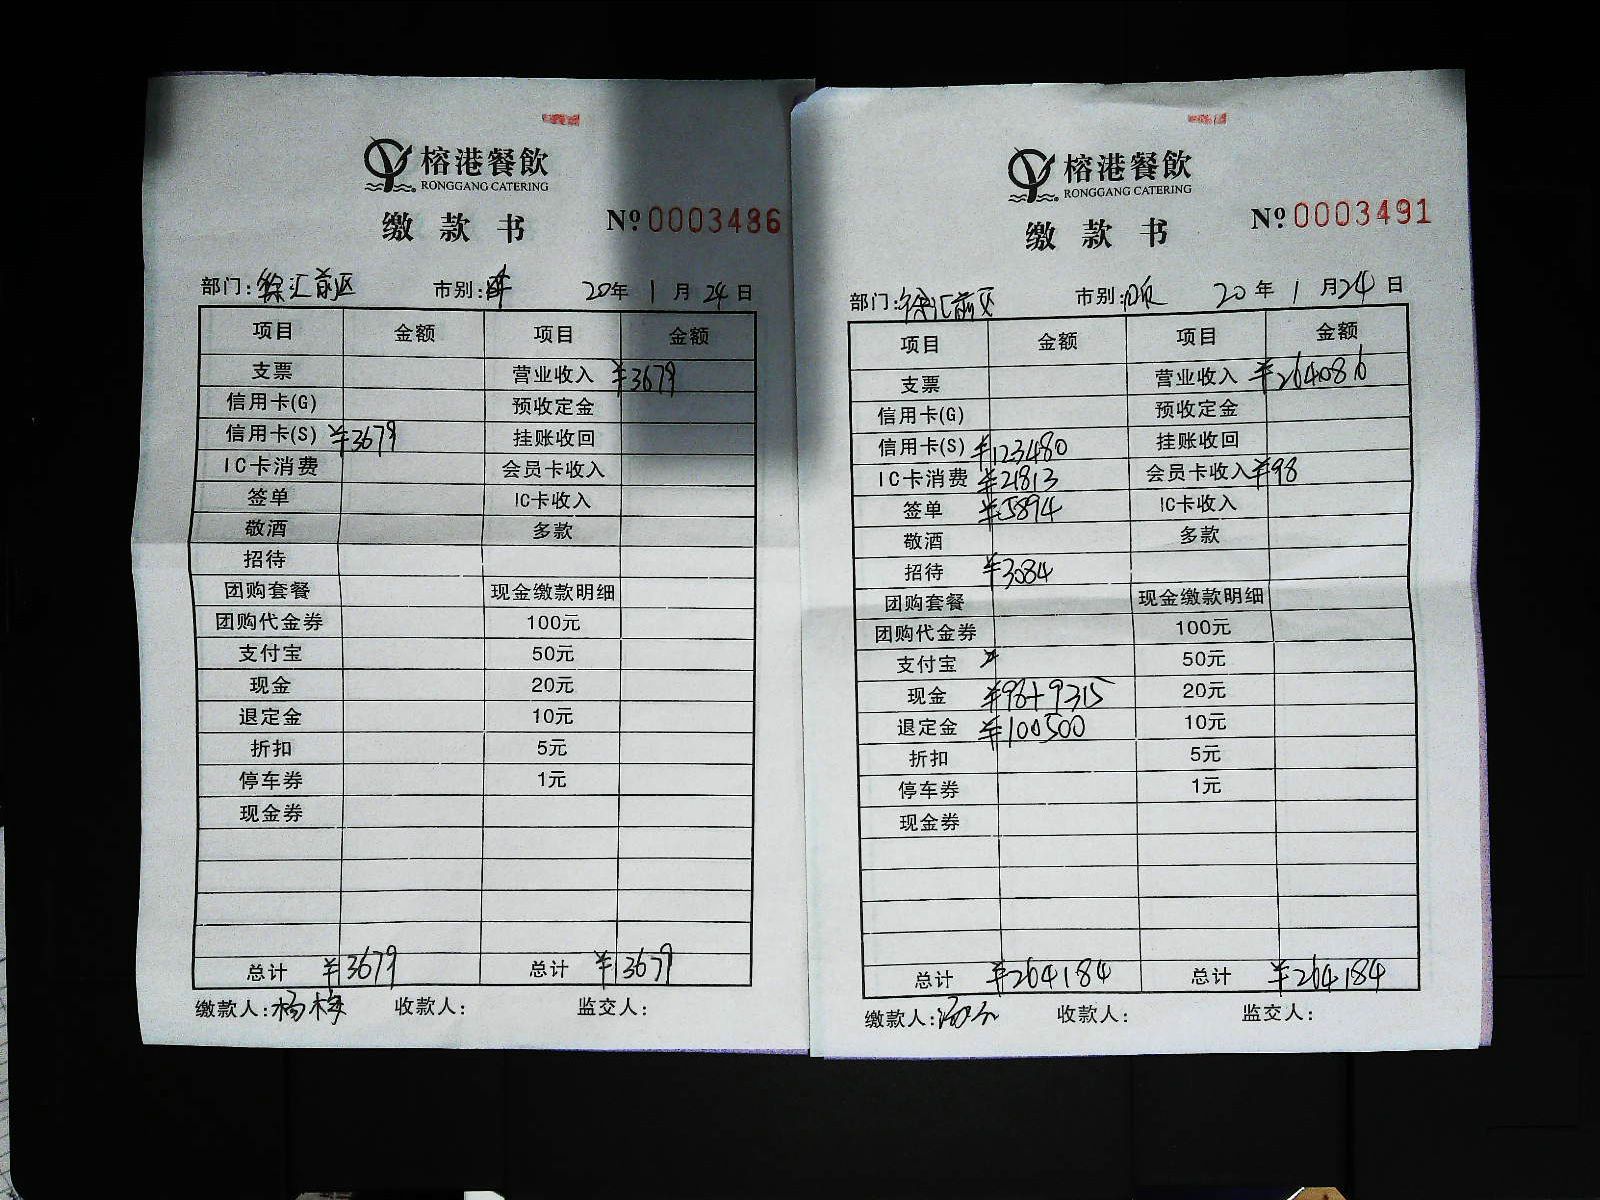 榕港餐飲
RONGGANG CATERING
缴款书 Nº 0003486
部门:徐汇前区 市别: 20年 1月 24日
项目 金额 项目 金额
支票 营业收入 ¥3679
信用卡(G) 预收定金
信用卡(S) ¥3679 挂账收回
IC卡消费 会员卡收入
签单 IC卡收入
敬酒 多款
招待
团购套餐 现金缴款明细
团购代金券 100元
支付宝 50元
现金 20元
退定金 10元
折扣 5元
停车券 1元
现金券
总计 ¥3679 总计 ¥3679
缴款人:杨梅 收款人: 监交人:
榕港餐飲
RONGGANG CATERING
缴款书 Nº 0003491
部门:徐汇前区 市别: 20年 1月24日
项目 金额 项目 金额
支票 营业收入 ¥264086
信用卡(G) 预收定金
信用卡(S) ¥123480 挂账收回
IC卡消费 ¥21813 会员卡收入 ¥98
签单 ¥5894 IC卡收入
敬酒 多款
招待 ¥3084
团购套餐 现金缴款明细
团购代金券 100元
支付宝 50元
现金 ¥98+9315 20元
退定金 ¥100500 10元
折扣 5元
停车券 1元
现金券
总计 ¥264184 总计 ¥264184
缴款人: 收款人: 监交人: